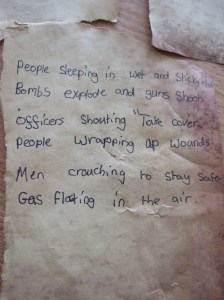 People sleeping in wet and sticky
Bombs explode and guns shoot
Officers shouting "Take cover
People wrapping up wounds
Men crouching to stay safe
Gas floting in the air.